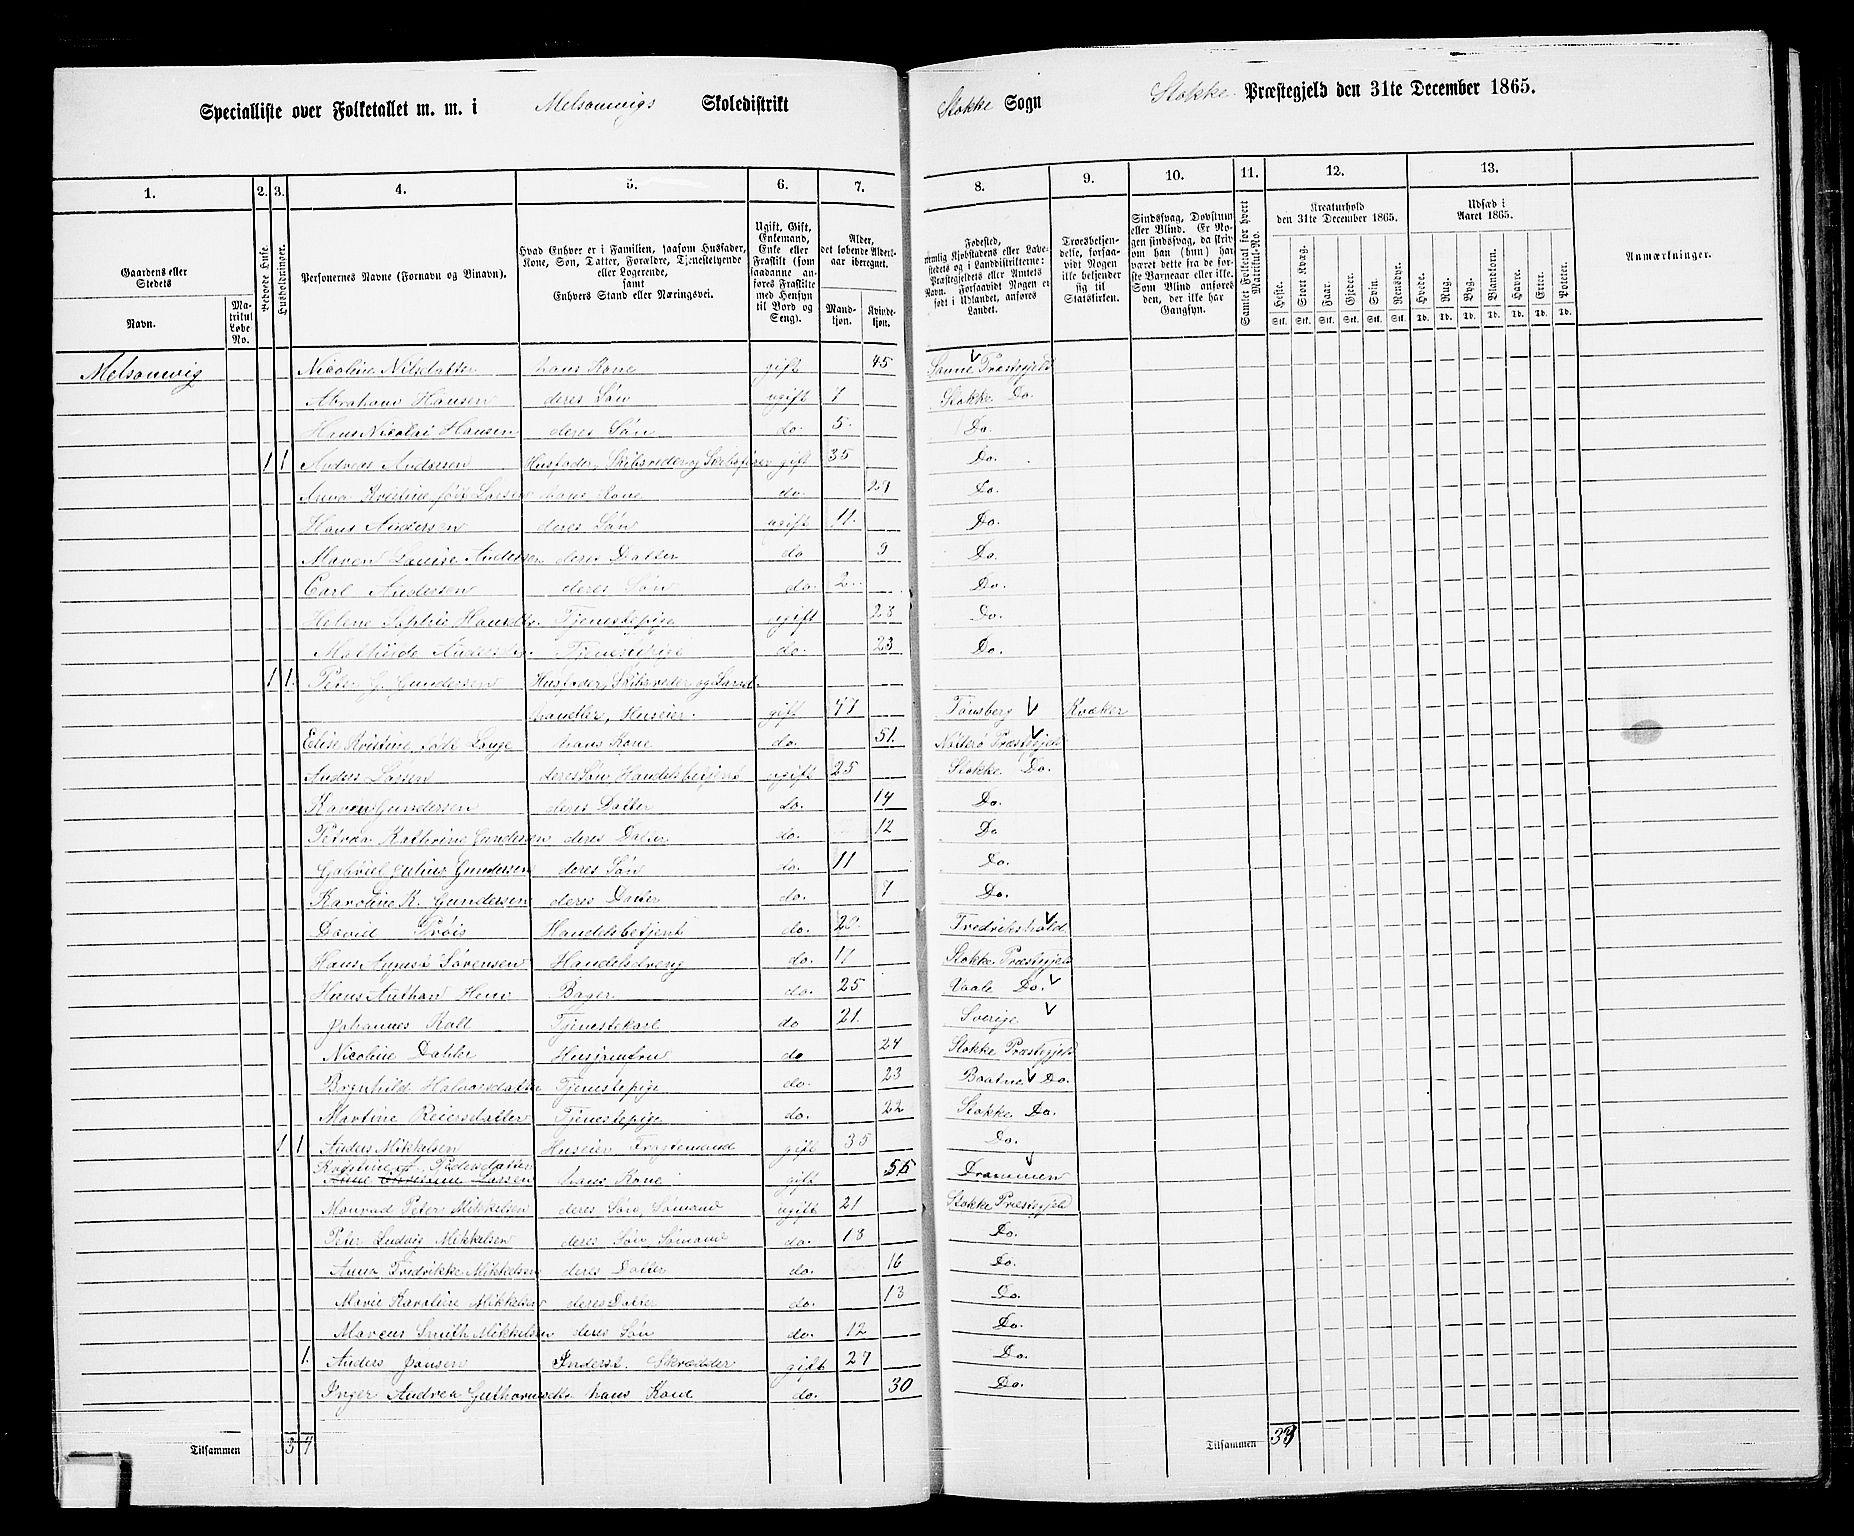 Specialliste over Folketallet m. m. i Melsomvigs Skoledistrikt Stokke Sogn Stokke Præstegjeld den 31te December 1865.
1. 2. 3. 4. 5. 6. 7. 8. 9. 10. 11. 12. 13.
Gaardens eller Stedets Navn. Matrikul Løbe-No. Beboede Huse. Husholdninger. Personernes Navne (Fornavn og Vinavn). Hvad Enhver er i Familien, saasom Husfader, Kone, Søn, Datter, Forældre, Tjenestetyende eller Logerende, samt Enhvers Stand eller Næringsvei. Ugift, Gift, Enkemand, Enke eller Fraskilt (som saadanne anføres Fraskilte med Hensyn til Bord og Seng). Alder, det løbende Aldersaar iberegnet. Mandkjøn. Kvindekjøn. Fødested, nemlig Kjøbstadens eller Ladestedets og i Landdistrikterne: Præstegjeldets eller Amtets Navn. Forsaavidt Nogen er født i Udlandet, anføres Landet. Troesbekjendelse, forsaavidt Nogen ikke bekjender sig til Statskirken. Sindssvag, Døvstum eller Blind. Er Nogen sindssvag, da skriv om han (hun) har været dette fra de første Barneaar eller ikke. Som Blind anføres den, der ikke har Gangsyn. Samlet Folketal for hvert Matrikul-No. Kreaturhold den 31te December 1865. Heste. Stort Kvæg. Faar. Gjeder. Svin. Rensdyr. Udsæd i Aaret 1865. Hvede. Rug. Byg. Blandkorn. Havre. Erter. Poteter. Anmærkninger.
Stk. Stk. Stk. Stk. Stk. Stk. Td. Td. Td. Td. Td. Td. Td.
Melsomvig Nicoline Nilsdatter hans Kone gift 45 Præstegjeld
Abraham Hansen deres Søn ugift 7 Stokke Do.
Hans Nicolai Hansen deres Søn do. 5. Do.
1 1 Andreas Andersen Husfader, Skibsreder og Skibsfører gift 35 Do.
Kristine født Larsen hans Kone do. 29 Do.
Hans Andersen deres Søn ugift 11. Do.
Maren Louise Andersen deres Datter do 9 Do.
Carl Andersen deres Søn do. 2. Do.
Helene Sophie Hansdtr. Tjenestepige ugift 23 Do.
Mathilde Andersdtr. Tjenestepige do. 23 Do.
1 1. Peter G. Gundersen Husfader, Skibsreder og
handler, Huseier. gift 47 Tønsberg Kvæker
Elise Kristine født Lange hans Kone do. 51. Nøtterø Præstegjeld
Anders Larsen deres Søn, Handelsbetjent ugift 25 Stokke Do.
Karen Gundersen deres Datter do. 14 Do.
Petrea Kathrine Gundersen deres Datter do. 12 Do
Gabriel Julius Gundersen deres Søn do. 11 Do.
Karoline K. Gundersen deres Datter do. 7 Do.
David Handelsbetjent do. 20. Fredrikshald
Hans August Sørensen Handelsdreng do. 11 Stokke Præstegjeld
Hans Anthon Bager. do. 25 Vaale Do.
Johannes Tjenestekarl do 21. Sverige
Nicoline Dahler Husjomfru do 24 Stokke Præstegjeld
Brynhild Halvorsdatter Tjenestepige do. 23 Do.
Martine Reiersdatter Tjenestepige do. 22 Stokke Do.
1 1 Anders Mikkelsen Huseier gift 35 Do.
Pedersdatter hans Kone gift 55 Drammen
Konrad Peter Mikkelsen deres Søn, Sømand ugift 21 Stokke Præstegjeld
Peter Ludvig Mikkelsen deres Søn Sømand do. 18 Do.
Anna Fredrikke Mikkelsen deres Datter do. 16 Do.
Marie Karoline Mikkelsen deres Datter do. 13 Do.
Marcus Smith Mikkelsen deres Søn do. 12 Do.
1. Anders Jansen Inderst. Skrædder gift 27 Do.
Inger Andrea hans Kone do. 30 Do.
Tilsammen 3 4 Tilsammen